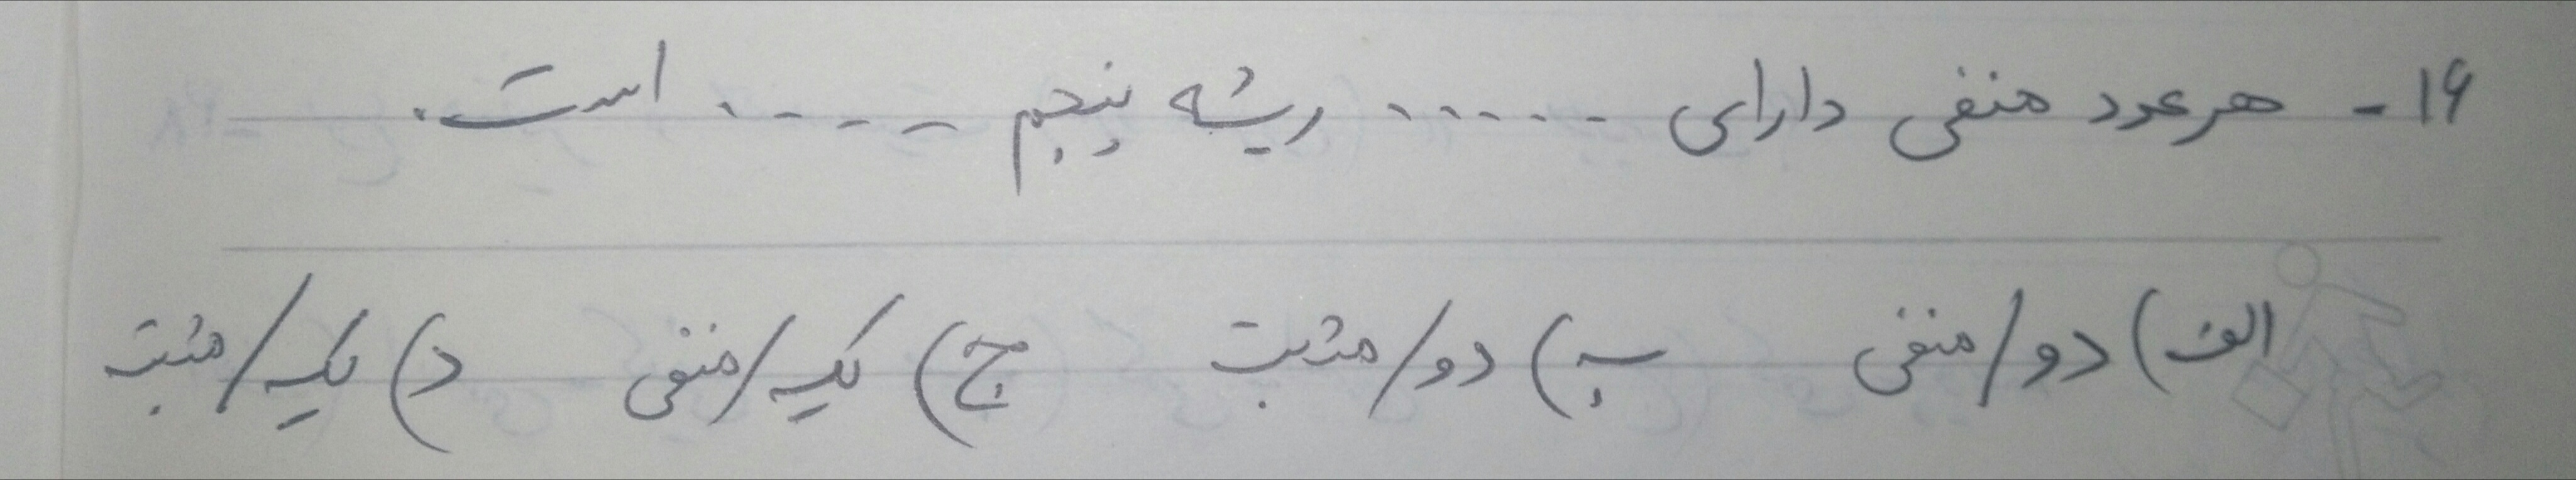 ۱۶- هر عدد منفی دارای ...... ریشه پنجم ...... است.
الف) دو/منفی ب) دو/مثبت ج) یک/منفی د) یک/مثبت